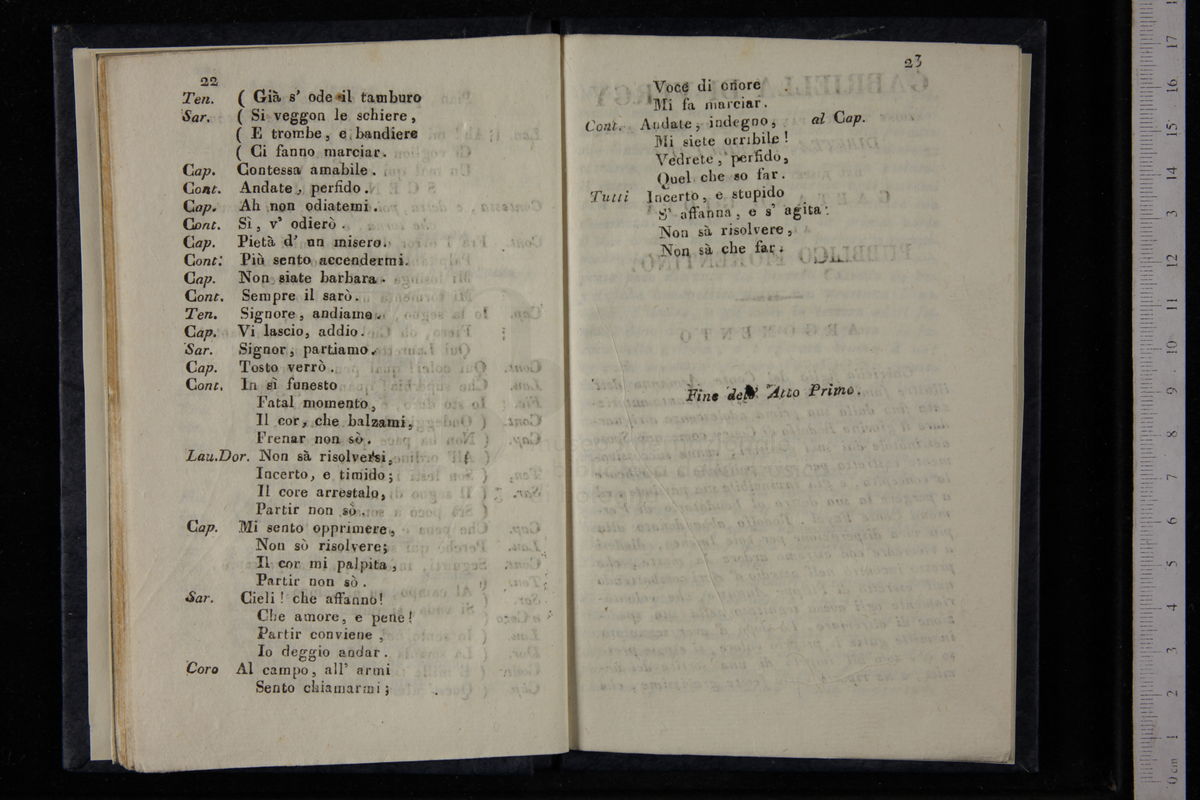 22
Ten. ( Già s' ode il tamburo
Sar. ( Si veggon le schiere,
( E trombe, e bandiere
( Ci fanno marciar.
Cap. Contessa amabile.
Cont. Andate, perfido.
Cap. Ah non odiatemi.
Cont. Sì, v' odierò.
Cap. Pietà d' un misero.
Cont: Più sento accendermi.
Cap. Non siate barbara.
Cont. Sempre il sarò.
Ten. Signore, andiamo.
Cap. Vi lascio, addio.
Sar. Signor, partiamo.
Cap. Tosto verrò.
Cont. In sì funesto
Fatal momento,
Il cor, che balzami,
Frenar non sò.
Lau.Dor. Non sà risolversi,
Incerto, e timido;
Il core arrestalo,
Partir non sò.
Cap. Mi sento opprimere,
Non sò risolvere;
Il cor mi palpita,
Partir non sò.
Sar. Cieli! che affanno!
Che amore, e pene!
Partir conviene,
Io deggio andar.
Coro Al campo, all' armi
Sento chiamarmi;
23
Voce di onore
Mi fa marciar.
Cont. Andate, indegno, al Cap.
Mi siete orribile!
Vedrete, perfido,
Quel che so far.
Tutti Incerto, e stupido
S' affanna, e s' agita:
Non sà risolvere,
Non sà che far.
Fine dell' Atto Primo.
0 cm 1 2 3 4 5 6 7 8 9 10 11 12 13 14 15 16 17